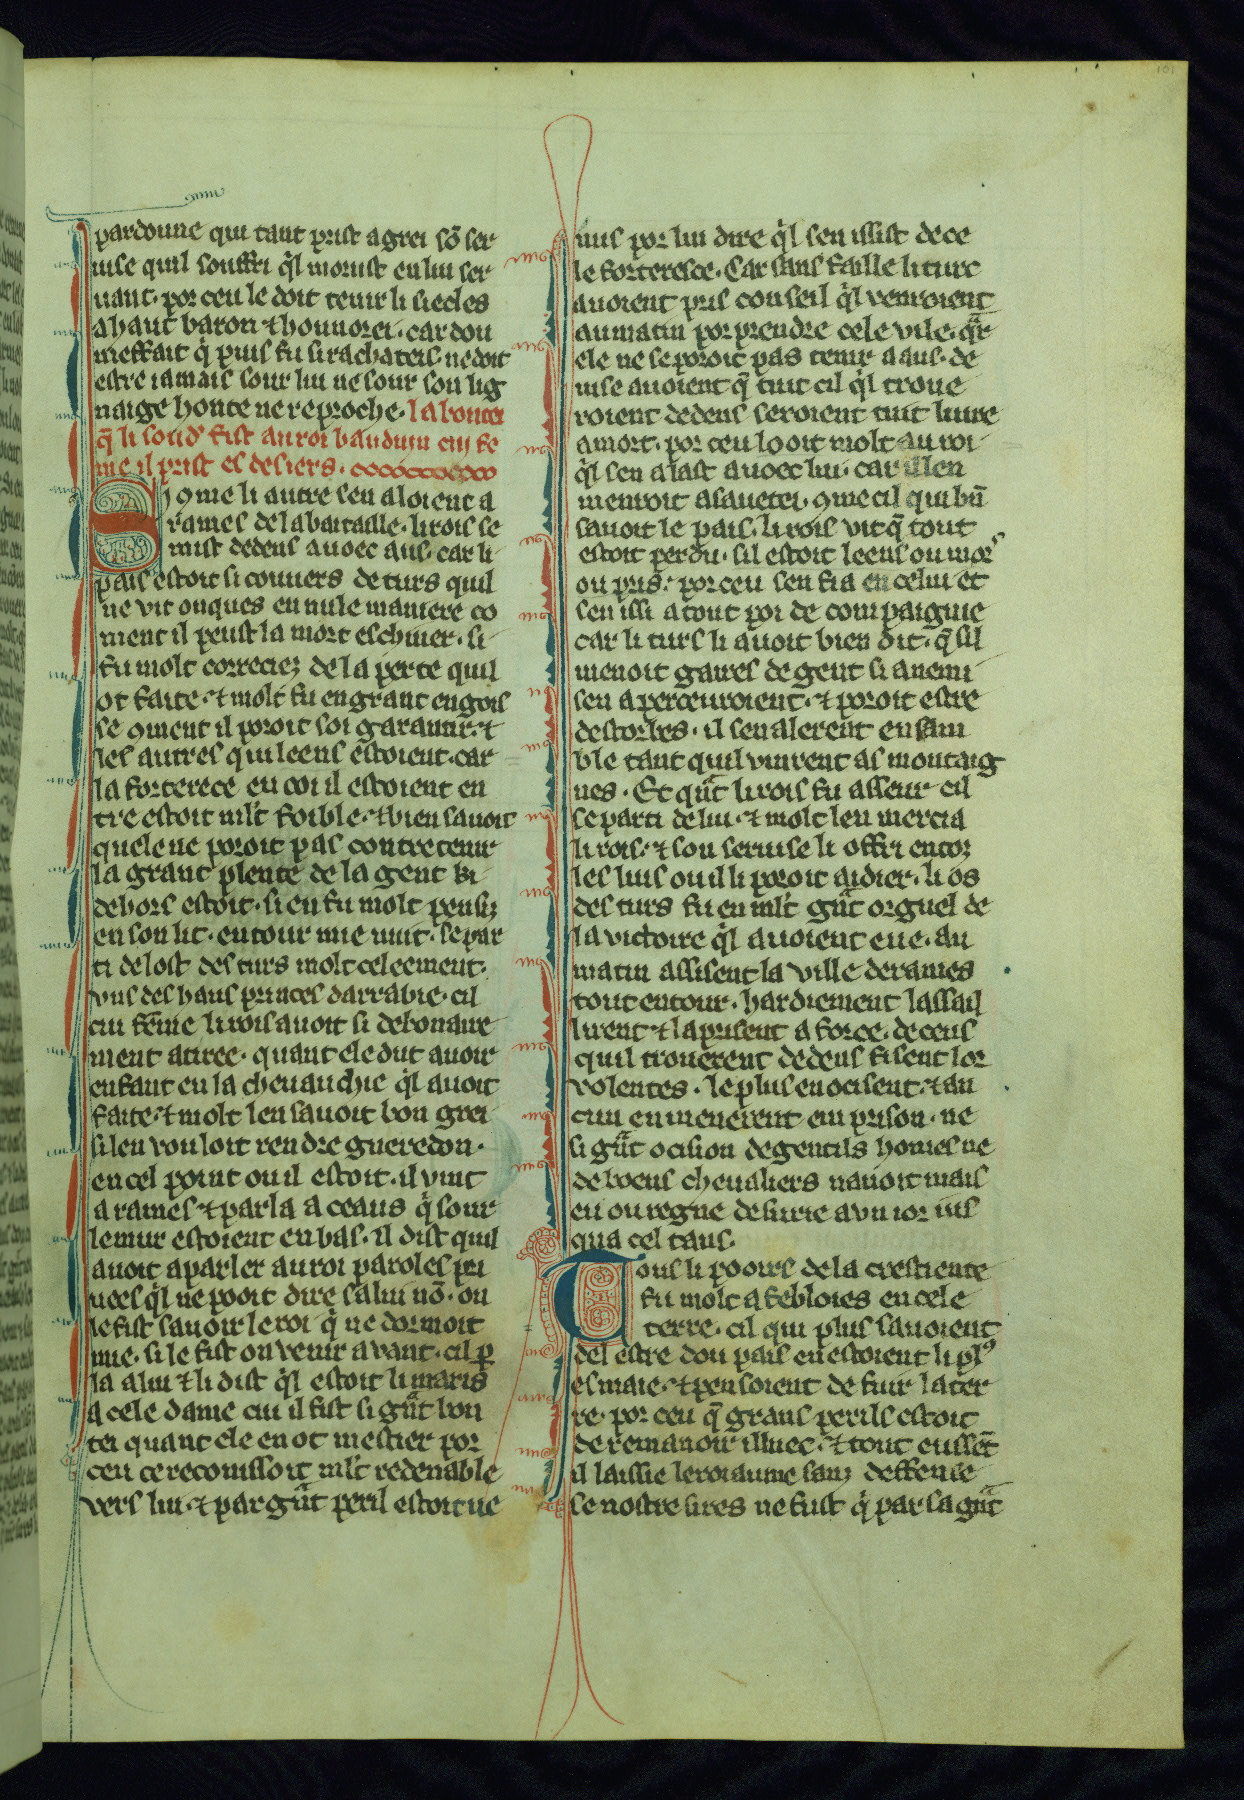 pardoune qui tant prist a grei sō ser
uise quil souffri q̓l morust en lui ser
uant. por ceu le doit tenir li siecles
a haut baron ⁊ honnorei. car dou
meffait q̓ puis fu si rachateis. ne doit
estre iamais sour lui ne sour son lig
naige honte ne reproche. la bontei
q̄ li soud' fist au roi bauduin cui fe
me il prist es desiers.
Si 9me li autre sen aloient a
rames de la bataille. li rois se
mist dedens auoec aus. car li
pais estoit si couuers de turs quil
ne vit onques en nule maniere co
ment il peust la mort eschiuer. si
fu molt correciez de la perte quil
ot faite. ⁊ molt fu en grant engois
se 9ment il poroit soi garantir. ⁊
les autres qui leens estoient. car
la forterece en coi il estoient en
tre estoit ml't foible. ⁊ bien sauoit
quele ne poroit pas contretenir
la grant plente de la gent ki
dehors estoit. si en fu molt pensiz
en son lit. entour mie nuit. se par
ti de lost des turs molt celeement.
vns des haus princes darrabie. cil
cui fēme li rois auoit si debonaire
ment atiree. quant ele dut auoir
enfant en la cheuauchie q̓l auoit
faite. ⁊ molt len sauoit bon grei
si len vouloit rendre gueredon.
en cel point ou il estoit. il vint
a rames ⁊ parla a ceaus q̓ sour
le mur estoient en bas. Il dist quil
auoit a parler au roi paroles pri
uees q̓l ne pooit dire s a lui nō. on
le fist sauoir le roi q̓ ne dormoit
mie. si le fist on venir auant. cil ꝑ
la a lui ⁊ li dist q̓l estoit li maris
a cele dame cui il fist si gnt bon
tei quant ele en ot mestier por
ceu ce reconissoit ml't redeuable
vers lui. ⁊ par gnt peril estoit ue
nus por lui dire q̓l sen issist de ce
le forteresce. Car sans faille li turc
auoient pris conseil q̓l venroient
au matin por prendre cele vile. q̓r
ele ne se poroit pas tenir a aus. de
uise auoient q̄ tuit cil q̓l troue
roient dedens seroient tuit liure
a mort. por ceu looit molt au roi
q̓l sen alast auoec lui. car il len
menroit a sauetei. 9me cil qui bn̄
sauoit le pais. li rois vit q̄ tout
estoit perdu. sil estoit leens ou mors
ou pris. por ceu sen fia en celui et
sen issi a tout poi de compaignie
car li turs li auoit bien dit. q̄ sil
menoit gaires de gent si anemi
sen aperceuroient. ⁊ poroit estre
destorbes. il sen alerent ensam
ble tant quil vinrent as montaig
nes. Et qnt li rois fu asseur cil
se parti de lui. ⁊ molt len mercia
li rois. ⁊ son seruise li offri en toz
les luis ou il li poroit aidier. li os
des turs fu en ml't gnt orguel de
la victoire q̓l auoient eue. au
matin assisent la ville de rames
tout entour. hardiement lassail
lirent ⁊ la prisent a force. de ceus
quil trouerent dedens fisent lor
volentes. le plus en ocisent. ⁊ au
cun en menerent em prison. ne
si gnt ocision de gentils homes ne
de boens cheualiers nauoit mais
eu ou regne de surie a vn ior ius
qua cel tans.
Tous li pooirs de la crestiente
fu molt afebloies en cele
terre. cil qui plus sauoient
del estre dou pais en estoient li pl9
esmaie. ⁊ pensoient de fuir la ter
re. por ceu q̄ grans perils estoit
de remanoir illuec. ⁊ tout eussēt
il laissie le roiaume sanz deffense
se nostre sires ne fust q̓ par sa gnt